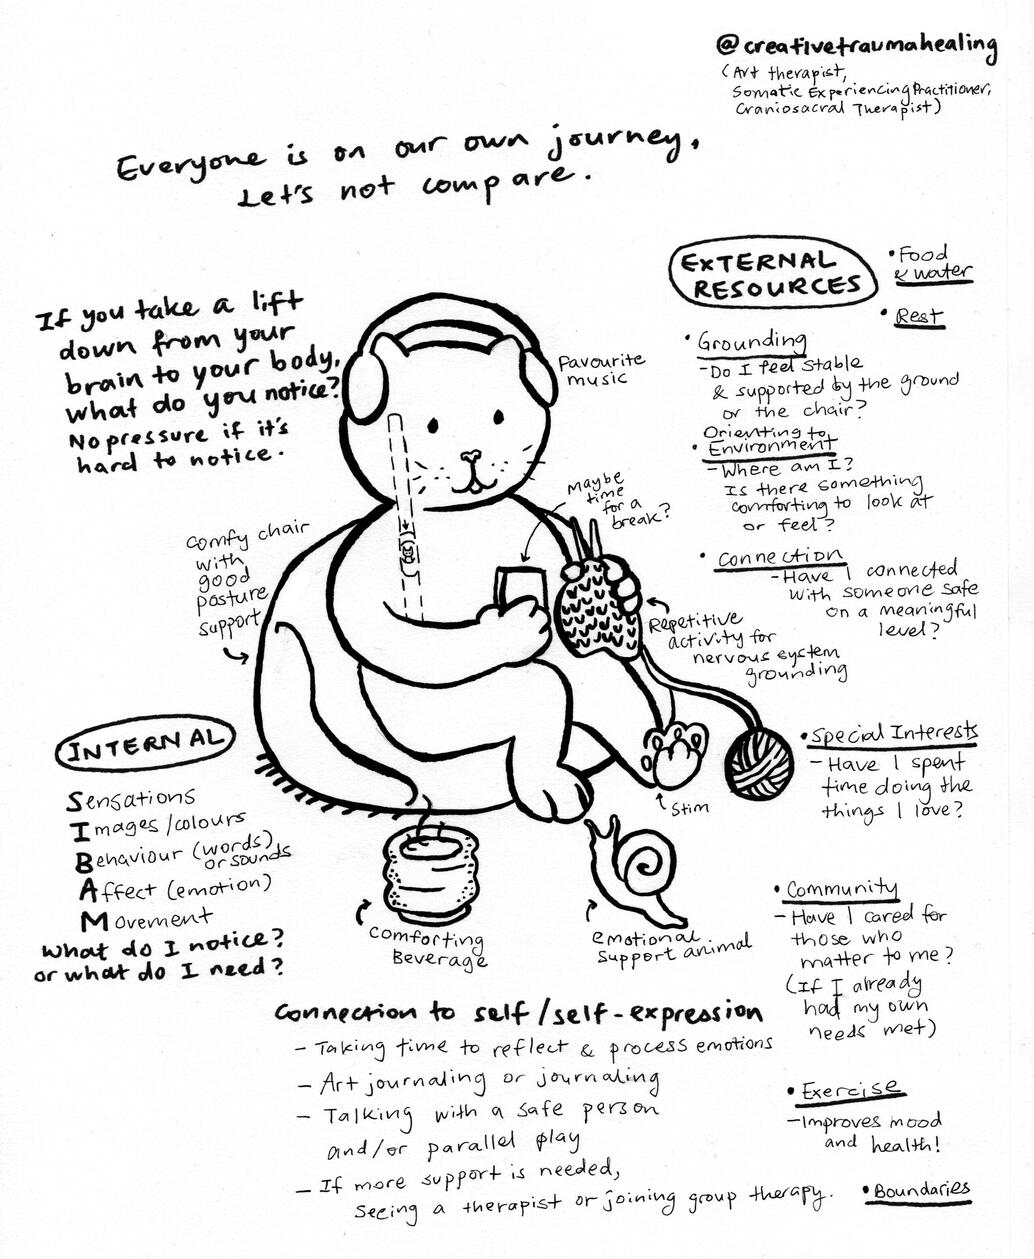 @creativetraumahealing
(Art therapist,
Somatic Experiencing Practitioner,
Craniosacral Therapist)
Everyone is on our own journey,
Let's not compare.
If you take a lift
down from your
brain to your body,
what do you notice?
No pressure if it's
hard to notice.
Favourite
music
Maybe
time
for a
break?
comfy chair
with
good
posture
support
Repetitive
activity for
nervous system
grounding
Stim
INTERNAL
Sensations
Images/colours
Behaviour (words)
or sounds
Affect (emotion)
Movement
What do I notice?
or what do I need?
Comforting
Beverage
emotional
support animal
EXTERNAL
RESOURCES
• Food
& water
• Rest
• Grounding
- Do I feel stable
& supported by the ground
or the chair?
Orienting to
• Environment
- Where am I?
Is there something
comforting to look at
or feel?
• Connection
- Have I connected
with someone safe
on a meaningful
level?
• Special Interests
- Have I spent
time doing the
things I love?
• Community
- Have I cared for
those who
matter to me?
(If I already
had my own
needs met)
• Exercise
- Improves mood
and health!
• Boundaries
Connection to self/self-expression
- Taking time to reflect & process emotions
- Art journaling or journaling
- Talking with a safe person
and/or parallel play
- If more support is needed,
seeing a therapist or joining group therapy.